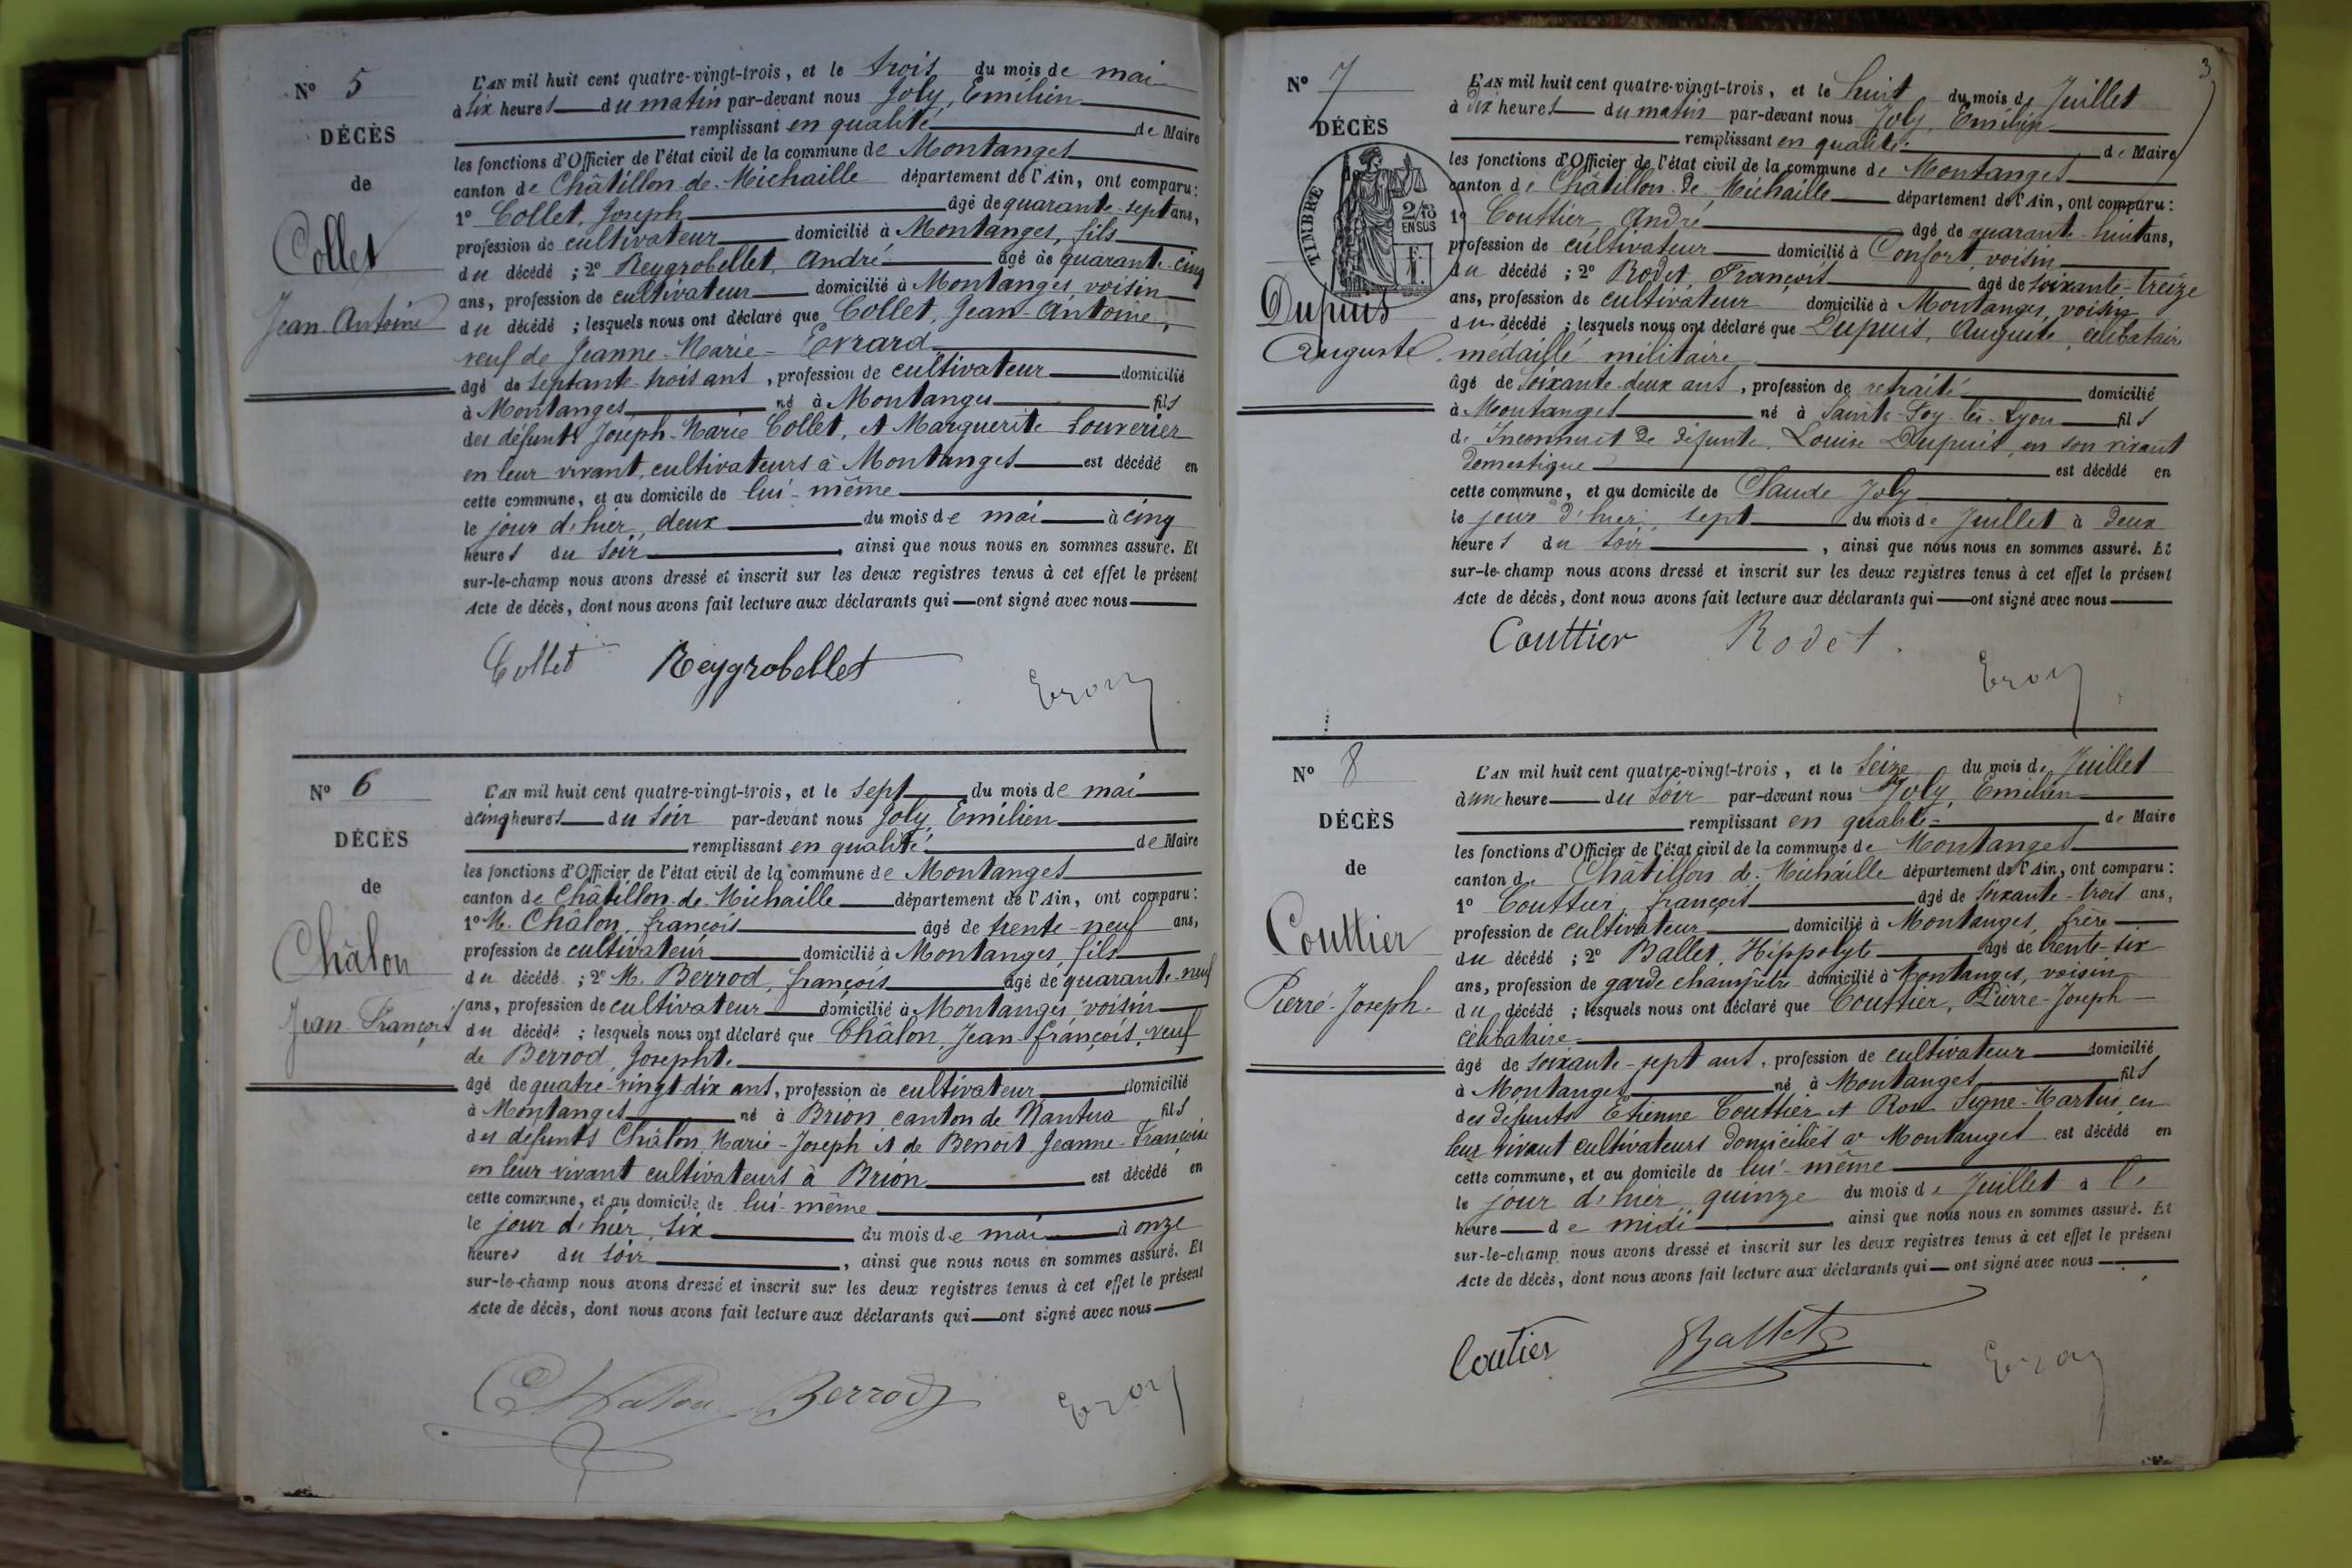 N° 5
DÉCÈS
de
Collet
Jean-Antoine
L'AN mil huit cent quatre-vingt-trois, et le trois du mois de mai
à six heures du matin par-devant nous Joly, Emilien
remplissant en qualité de Maire
les fonctions d'Officier de l'état civil de la commune de Montanges
canton de Châtillon-de-Michaille département de l'Ain, ont comparu :
1° Collet, Joseph âgé de quarante-sept ans,
profession de cultivateur domicilié à Montanges, fils
du décédé ; 2° Reygrobellet, André âgé de quarante-cinq
ans, profession de cultivateur domicilié à Montanges voisin
du décédé ; lesquels nous ont déclaré que Collet, Jean-Antoine,
veuf de Jeanne-Marie - Evrard
âgé de septante-trois ans, profession de cultivateur domicilié
à Montanges né à Montanges fils
des défunts Joseph-Marie Collet, et Marguerite Louverier
en leur vivant, cultivateurs à Montanges est décédé en
cette commune, et au domicile de lui-même
le jour d'hier, deux du mois de mai à cinq
heures du soir, ainsi que nous nous en sommes assuré. Et
sur-le-champ nous avons dressé et inscrit sur les deux registres tenus à cet effet le présent
Acte de décès, dont nous avons fait lecture aux déclarants qui ont signé avec nous
Collet Reygrobellet
N° 6
DÉCÈS
de
Châlon
Jean-François
L'AN mil huit cent quatre-vingt-trois, et le sept du mois de mai
à cinq heures du soir par-devant nous Joly, Emilien
remplissant en qualité de Maire
les fonctions d'Officier de l'état civil de la commune de Montanges
canton de Châtillon-de-Michaille département de l'Ain, ont comparu :
1° M. Châlon, françois âgé de trente-neuf ans,
profession de cultivateur domicilié à Montanges, fils
du décédé ; 2° M. Berrod, françois âgé de quarante-neuf
ans, profession de cultivateur domicilié à Montanges voisin
du décédé ; lesquels nous ont déclaré que Châlon, Jean-françois, veuf
de Berrod, Josephte
âgé de quatre-vingt dix ans, profession de cultivateur domicilié
à Montanges né à Brion, canton de Nantua fils
des défunts Châlon, Marie-Joseph et de Benoit Jeanne-Françoise
en leur vivant cultivateurs à Brion est décédé en
cette commune, et au domicile de lui-même
le jour d'hier, six du mois de mai à onze
heures du soir, ainsi que nous nous en sommes assuré. Et
sur-le-champ nous avons dressé et inscrit sur les deux registres tenus à cet effet le présent
Acte de décès, dont nous avons fait lecture aux déclarants qui ont signé avec nous
Chalon Berrod
3
N° 7
DÉCÈS
de
TIMBRE
2/10
EN SUS
Dupuis
Auguste
L'AN mil huit cent quatre-vingt-trois, et le huit du mois de Juillet
à dix heures du matin par-devant nous Joly, Emilien
remplissant en qualité de Maire
les fonctions d'Officier de l'état civil de la commune de Montanges
canton de Châtillon-de-Michaille département de l'Ain, ont comparu :
1° Couttier, André âgé de quarante-huit ans,
profession de cultivateur domicilié à Confort, voisin
du décédé ; 2° Rodet, François âgé de soixante-treize
ans, profession de cultivateur domicilié à Montanges, voisin
du décédé ; lesquels nous ont déclaré que Dupuis, Auguste, célibataire
médaillé militaire
âgé de soixante-deux ans, profession de retraité domicilié
à Montanges né à Sainte-Foy-lès-Lyon fils
de Inconnu et de défunte Louise Dupuis, en son vivant
domestique est décédé en
cette commune, et au domicile de Claude Joly
le jour d'hier, sept du mois de Juillet à deux
heures du soir, ainsi que nous nous en sommes assuré. Et
sur-le-champ nous avons dressé et inscrit sur les deux registres tenus à cet effet le présent
Acte de décès, dont nous avons fait lecture aux déclarants qui ont signé avec nous
Couttier Rodet.
N° 8
DÉCÈS
de
Couttier
Pierre-Joseph
L'AN mil huit cent quatre-vingt-trois, et le seize du mois de Juillet
à une heure du soir par-devant nous Joly, Emilien
remplissant en qualité de Maire
les fonctions d'Officier de l'état civil de la commune de Montanges
canton de Châtillon-de-Michaille département de l'Ain, ont comparu :
1° Couttier, françois âgé de soixante-trois ans,
profession de cultivateur domicilié à Montanges, frère
du décédé ; 2° Ballet, Hippolyte âgé de trente-six
ans, profession de garde champêtre domicilié à Montanges, voisin
du décédé ; lesquels nous ont déclaré que Couttier, Pierre-Joseph
célibataire
âgé de soixante-sept ans, profession de cultivateur domicilié
à Montanges né à Montanges fils
des défunts Etienne Couttier et Signe-Martin en
leur vivant cultivateurs domiciliés à Montanges est décédé en
cette commune, et au domicile de lui-même
le jour d'hier, quinze du mois de Juillet à l'
heure de midi, ainsi que nous nous en sommes assuré. Et
sur-le-champ nous avons dressé et inscrit sur les deux registres tenus à cet effet le présent
Acte de décès, dont nous avons fait lecture aux déclarants qui ont signé avec nous
Coutier Ballet